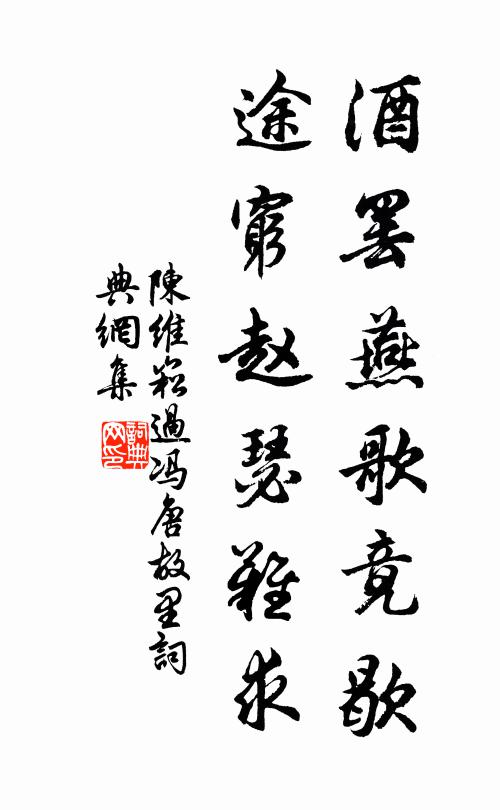 酒罢燕歌竟歇
途穷赵瑟难求
陳维崧過冯唐故里詞
典網集
詞典网印